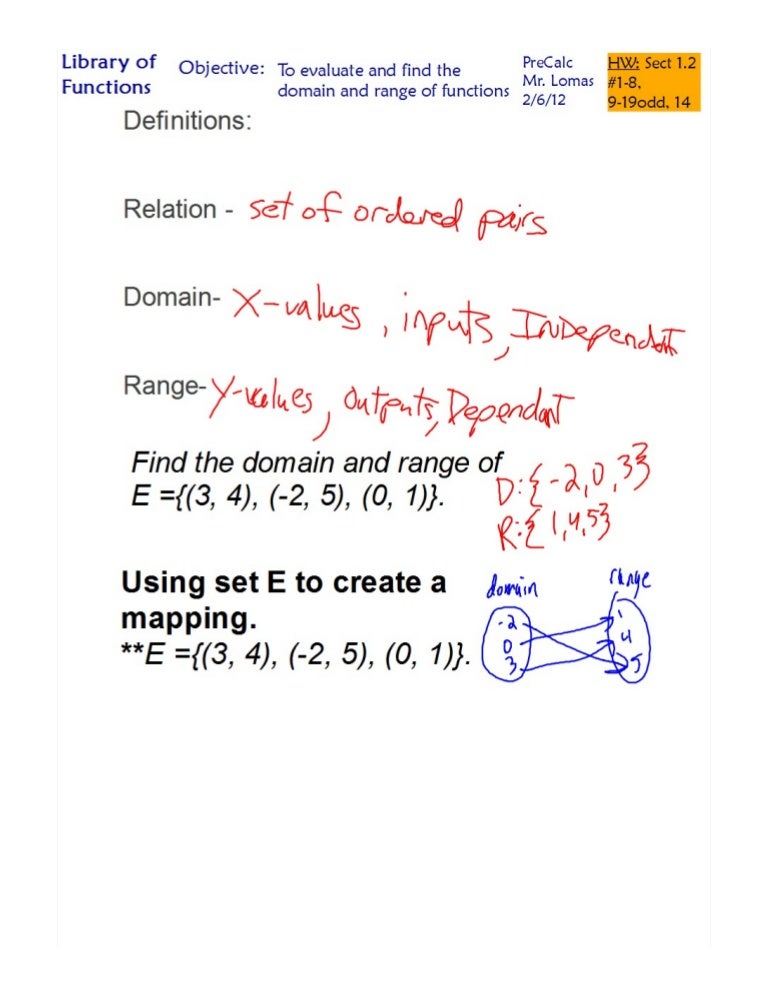 Library of
Functions
Objective:
To evaluate and find the
domain and range of functions
PreCalc
Mr. Lomas
2/6/12
HW: Sect 1.2
#1-8,
9-19odd, 14
Definitions:
Relation - set of ordered pairs
Domain- X-values, inputs, InDependent
Range- Y-values, Outputs, Dependant
Find the domain and range of
E ={(3, 4), (-2, 5), (0, 1)}.
D:{-2,0,3}
R:{1,4,5}
Using set E to create a
mapping.
**E ={(3, 4), (-2, 5), (0, 1)}.
domain
range
-2
0
3
1
4
5